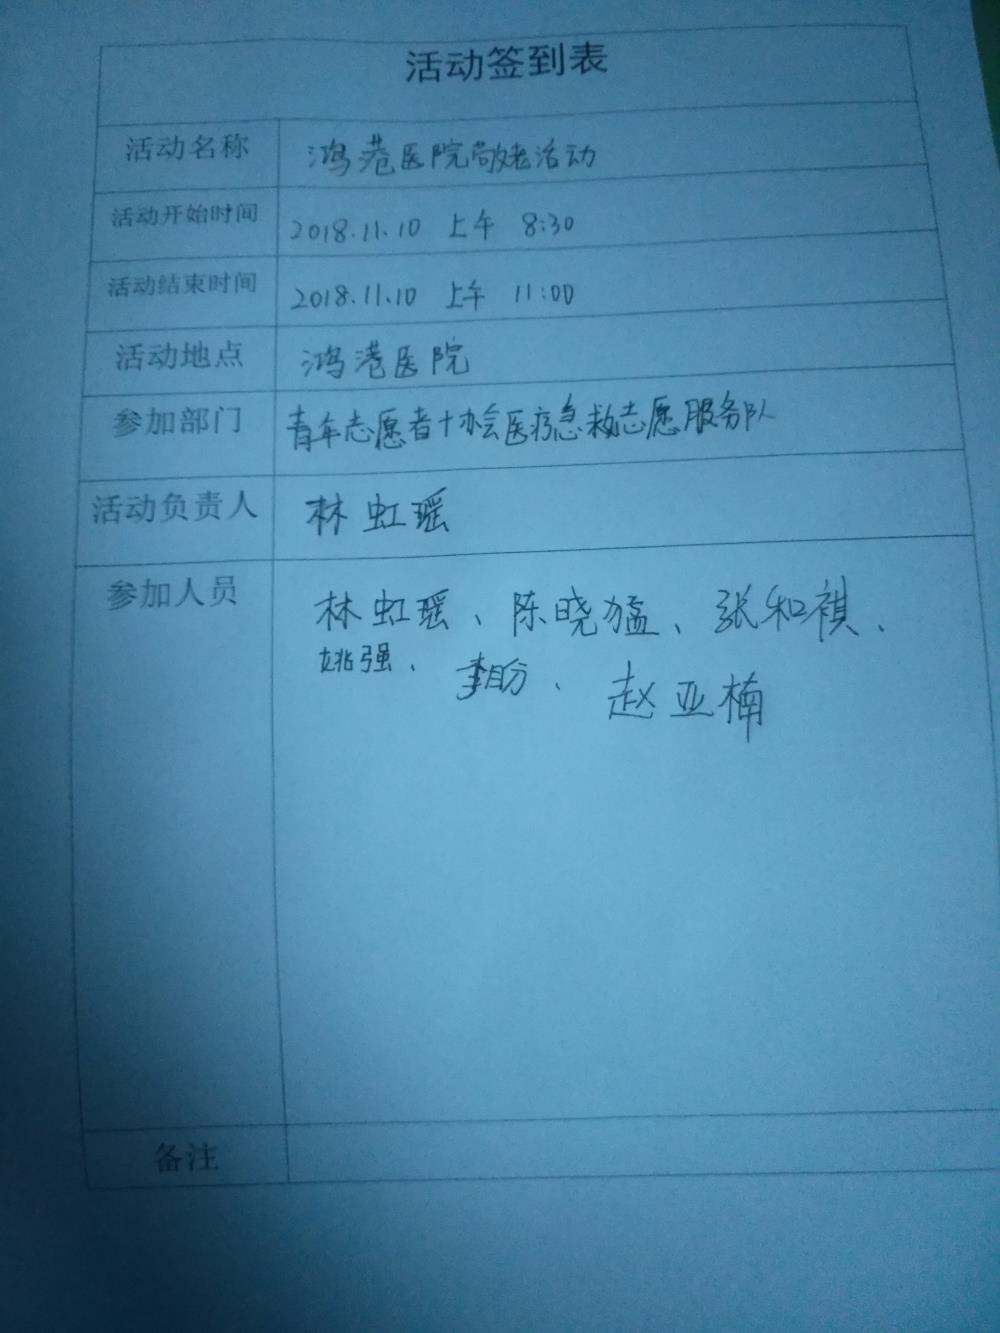 活动签到表
活动名称 鸿港医院敬老活动
活动开始时间 2018.11.10 上午 8:30
活动结束时间 2018.11.10 上午 11:00
活动地点 鸿港医院
参加部门 青年志愿者协会医疗急救志愿服务队
活动负责人 林虹瑶
参加人员 林虹瑶、陈晓猛、张和祺、
姚强、李盼、赵亚楠
备注